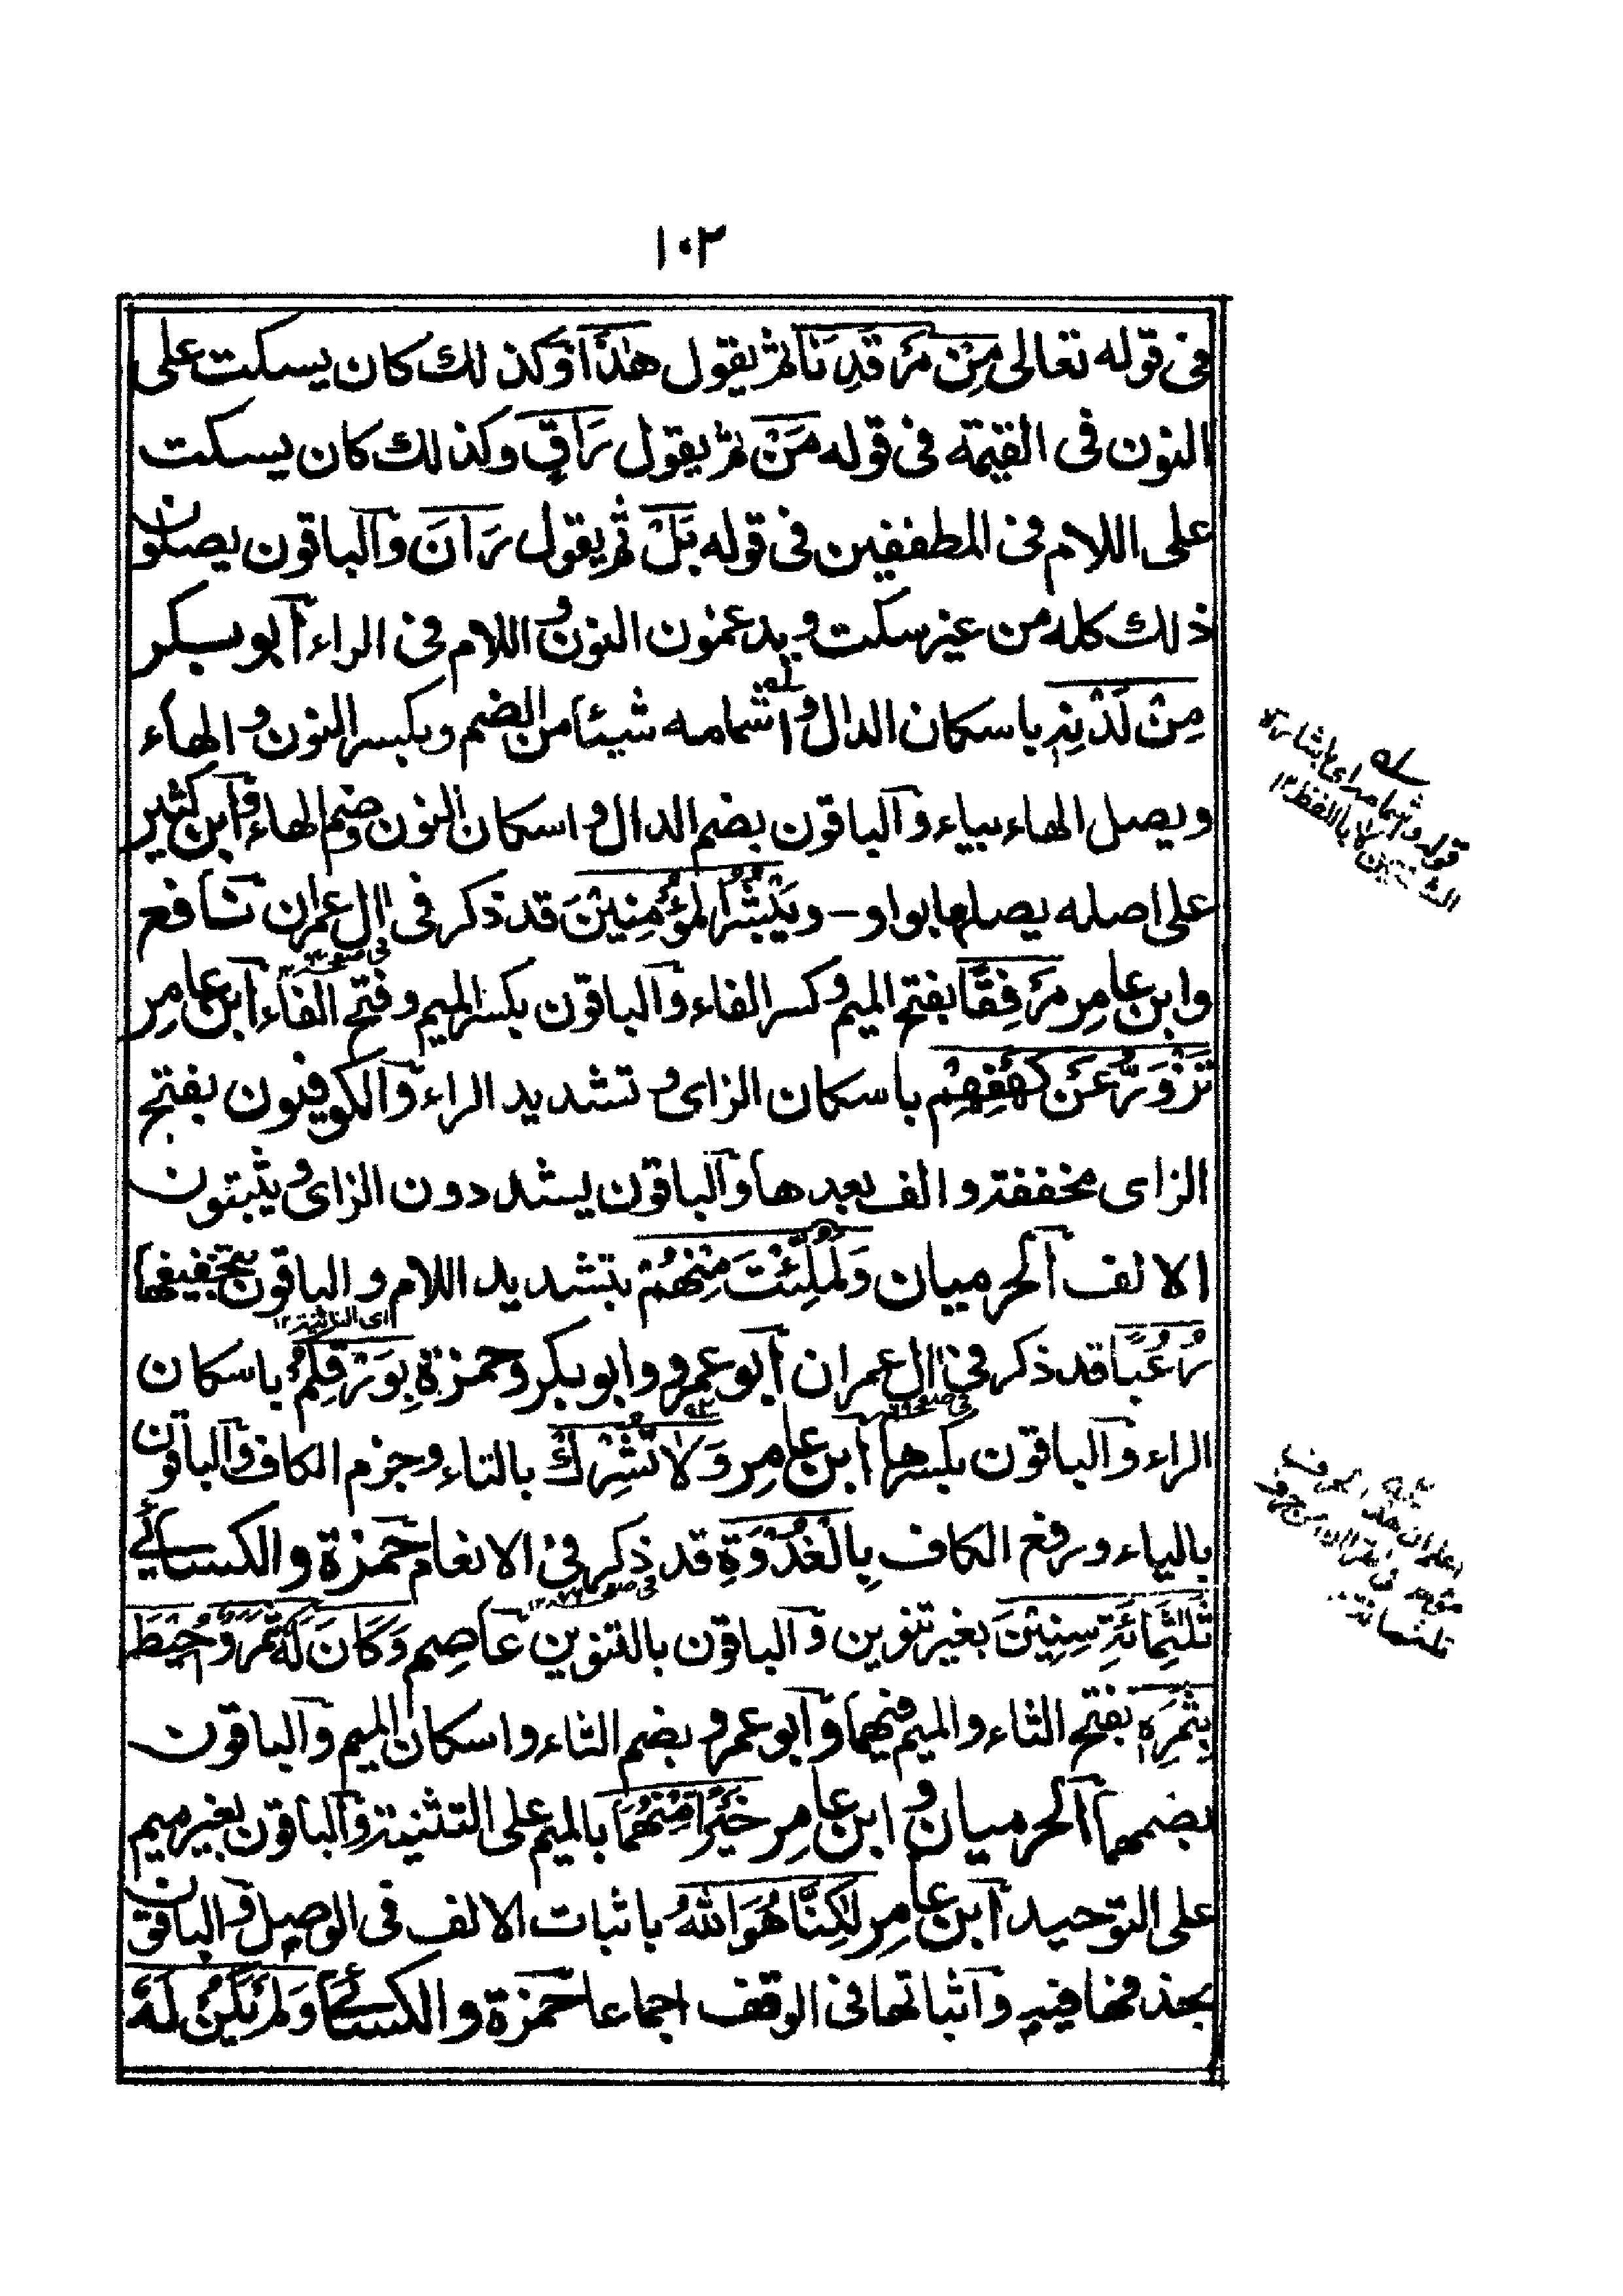 ١٠٢
فى قوله تعالى مِنْ مَرْقَدِنَا ثم يقول هٰذَا وكذلك كان يسكت على
النون فى القيٰمة فى قوله مَنْ ثم يقول رَاقٍ وكذلك كان يسكت
على اللام فى المطففين فى قوله بَلْ ثم يقول رَانَ والباقون يصلون
ذلك كله من غير سكت ويدغمون النون واللام فى الراء ابو بكر
مِنْ لَدْنِهٖ باسكان الدال واشمامه شيئا من الضم وبكسر النون والهاء
ويصل الهاء بياء والباقون بضم الدال واسكان النون وضم الهاء وابن كثير
على اصله يصلها بواو - ويَبْشُرُ الْمُؤْمِنِيْنَ قد ذكر فى اٰل عمران نافع
وابن عامِر مَرْفِقًا بفتح الميم وكسر الفاء والباقون بكسر الميم وفتح الفاء ابن عامِر
تَزْوَرُّ عَنْ كَهْفِهِمْ باسكان الزاى وتشديد الراء والكوفيون بفتح
الزاى مخففة والف بعدها والباقون يشددون الزاى ويثبتون
الالف الحرميان وَلَمُلِّئْتَ مِنْهُمْ بتشديد اللام والباقون بتخفيفها
رُعْبًا قد ذكر فى اٰل عمران ابو عمرو وابو بكر وحمزة بِوَرْقِكُمْ باسكان
الراء والباقون بكسرها ابن عامِر وَلَا تُشْرِكْ بالتاء وجزم الكاف والباقون
بالياء ورفع الكاف بِالْغُدْوَةِ قد ذكر فى الانعام حمزة والكسائى
ثَلٰثَمِائَةِ سِنِيْنَ بغير تنوين والباقون بالتنوين عاصِم وَكَانَ لَهٗ ثَمَرٌ وَاُحِيْطَ
بِثَمَرِهٖ بفتح الثاء والميم فيهما وابو عمرو بضم الثاء واسكان الميم والباقون
بضمهما الحرميان وابن عامِر خَيْرًا مِنْهُمَا بالميم على التثنية والباقون بغير ميم
على التوحيد ابن عامِر لٰكِنَّا هُوَ اللهُ باثبات الالف فى الوصل والباقون
بحذفها فيه واثباتها فى الوقف اجماعا حمزة والكسائى وَلَمْ يَكُنْ لَهٗ
قوله واشمامه اى اشارة
الشفتين لا باللفظ ١٢